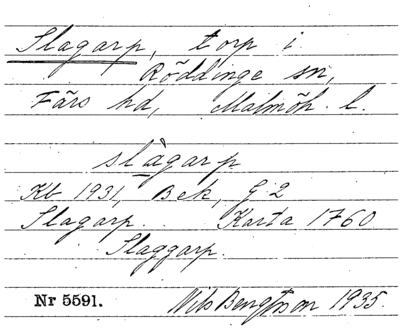 Slagarp, torp i
Röddinge sn,
Färs hd, Malmöh. l.
slàgarp
Kb 1931, Bek, G 2
Slagarp. Karta 1760
Slaggarp.
Nr 5591. Nils Bengtson 1935.